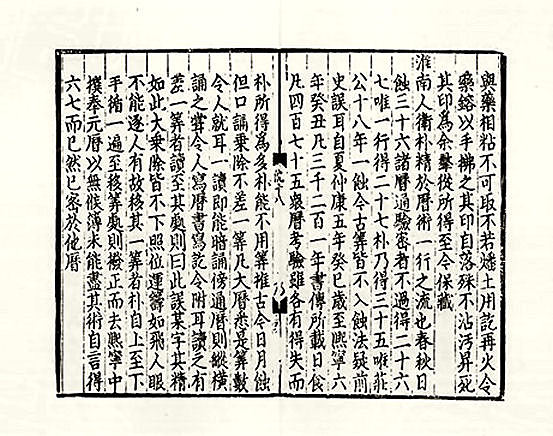 與藥相粘不可取不若燔土用訖再火令
藥鎔以手拂之其印自落殊不沾污昇死
其印為余羣從所得至今保藏
淮南人衛朴精於曆術一行之流也春秋日
蝕三十六諸曆通驗密者不過得二十六
七唯一行得二十七朴乃得三十五唯莊
公十八年一蝕今古算皆不入蝕法疑前
史誤耳自夏仲康五年癸巳歲至熙寧六
年癸丑凡三千二百一年書傳所載日食
凡四百七十五衆曆考驗雖各有得失而
十八
朴所得為多朴能不用算推古今日月蝕
但口誦乘除不差一算凡大曆悉是算數
令人就耳一讀即能暗誦傍通曆則縱橫
誦之嘗令人寫曆書寫訖令附耳讀之有
差一算者讀至其處則曰此誤某字其精
如此大乘除皆不下照位運籌如飛人眼
不能逐人有故移其一算者朴自上至下
手循一遍至移算處則撥正而去熙寧中
撰奉元曆以無候簿未能盡其術自言得
六七而已然已密於他曆